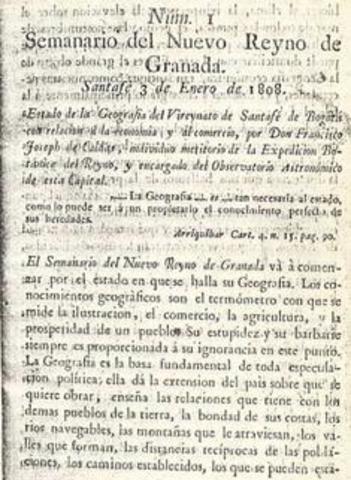 Núm. 1
Semanario del Nuevo Reyno de
Granada.
Santafé 3 de Enero de 1808.
Estado de la Geografia del Vireynato de Santafé de Bogotá
con relacion á la economía, y al comercio, por Don Francisco
Joseph de Caldas, individuo meritorio de la Expedicion Bo-
tánica del Reyno, y encargado del Observatorio Astronómico
de esta Capital.
La Geografia es tan necesaria al estado,
como lo puede ser á un propietario el conocimiento perfecto de
sus heredades.
Arriquibar Cart. 4. n. 15. pag. 90.
El Semanario del Nuevo Reyno de Granada vá á comen-
zar por el estado en que se halla su Geografia. Los co-
nocimientos geográficos son el termómetro con que se
mide la ilustracion, el comercio, la agricultura, y la
prosperidad de un pueblo. Su estupidez y su barbarie
siempre es proporcionada á su ignorancia en este punto.
La Geografia es la basa fundamental de toda especula-
cion política; ella dá la extension del pais sobre que se
quiere obrar, enseña las relaciones que tiene con los
demas pueblos de la tierra, la bondad de sus costas, los
rios navegables, las montañas que le atraviesan, los vá-
lles que forman, las distancias recíprocas de las poblá-
ciones, los caminos establecidos, los que se pueden está-